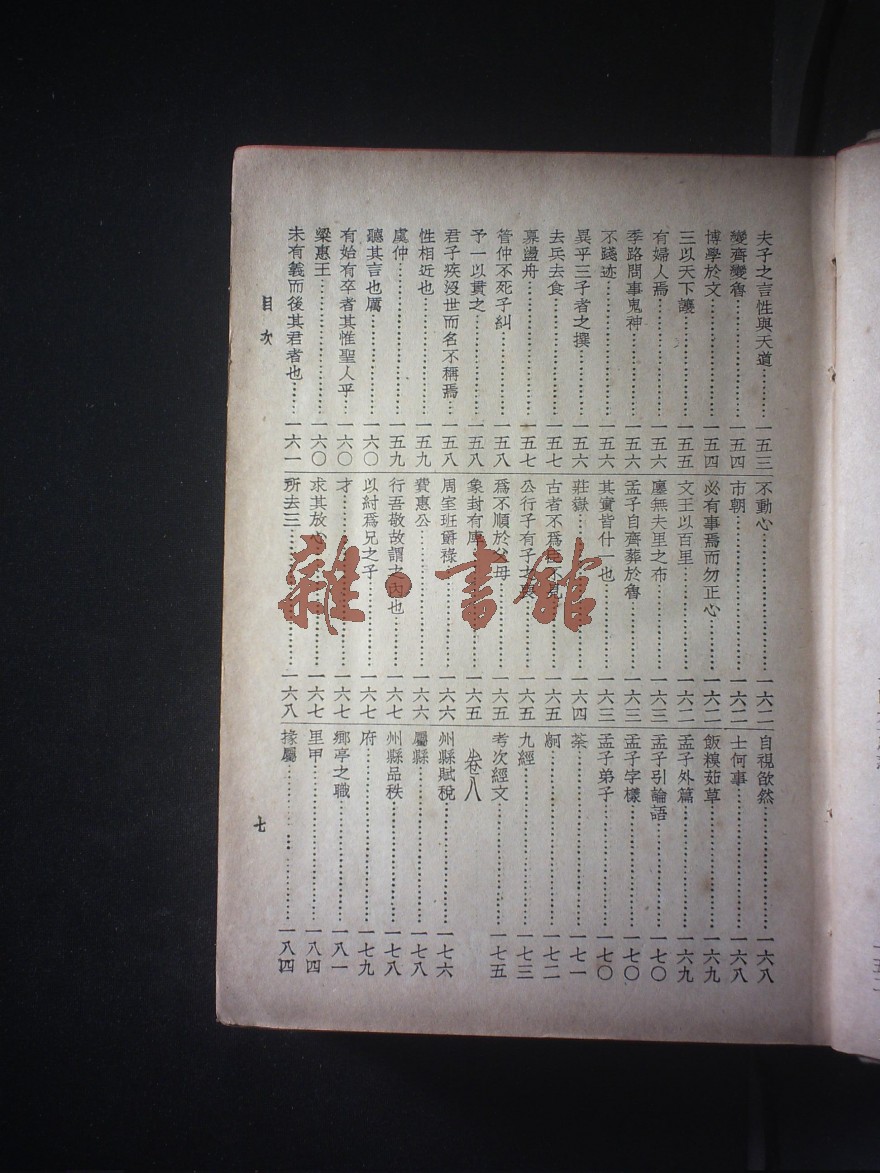 夫子之言性與天道………一五三
變齊變魯………一五四
博學於文………一五四
三以天下讓………一五五
有婦人焉………一五六
季路問事鬼神………一五六
不踐迹………一五六
異乎三子者之撰………一五六
去兵去食………一五七
奡盪舟………一五七
管仲不死子糾………一五八
予一以貫之………一五八
君子疾沒世而名不稱焉………一五八
性相近也………一五九
虞仲………一五九
聽其言也厲………一六〇
有始有卒者其惟聖人乎………一六〇
梁惠王………一六〇
未有義而後其君者也………一六一
不動心………一六二
市朝………一六二
必有事焉而勿正心………一六二
文王以百里………一六二
廛無夫里之布………一六三
孟子自齊葬於魯………一六三
其實皆什一也………一六三
莊嶽………一六四
古者不爲臣不見………一六五
公行子有子之喪………一六五
爲不順於父母………一六五
象封有庳………一六五
周室班爵祿………一六六
費惠公………一六六
行吾敬故謂之內也………一六七
以紂爲兄之子………一六七
才………一六七
求其放心………一六七
所去三………一六八
自視欿然………一六八
士何事………一六八
飯糗茹草………一六九
孟子外篇………一六九
孟子引論語………一七〇
孟子字樣………一七〇
孟子弟子………一七〇
荼………一七一
九經………一七三
考次經文………一七五
卷八
州縣賦稅………一七六
屬縣………一七八
州縣品秩………一七八
府………一七九
鄉亭之職………一八一
里甲………一八四
掾屬………一八四
目次
七
雜·書館